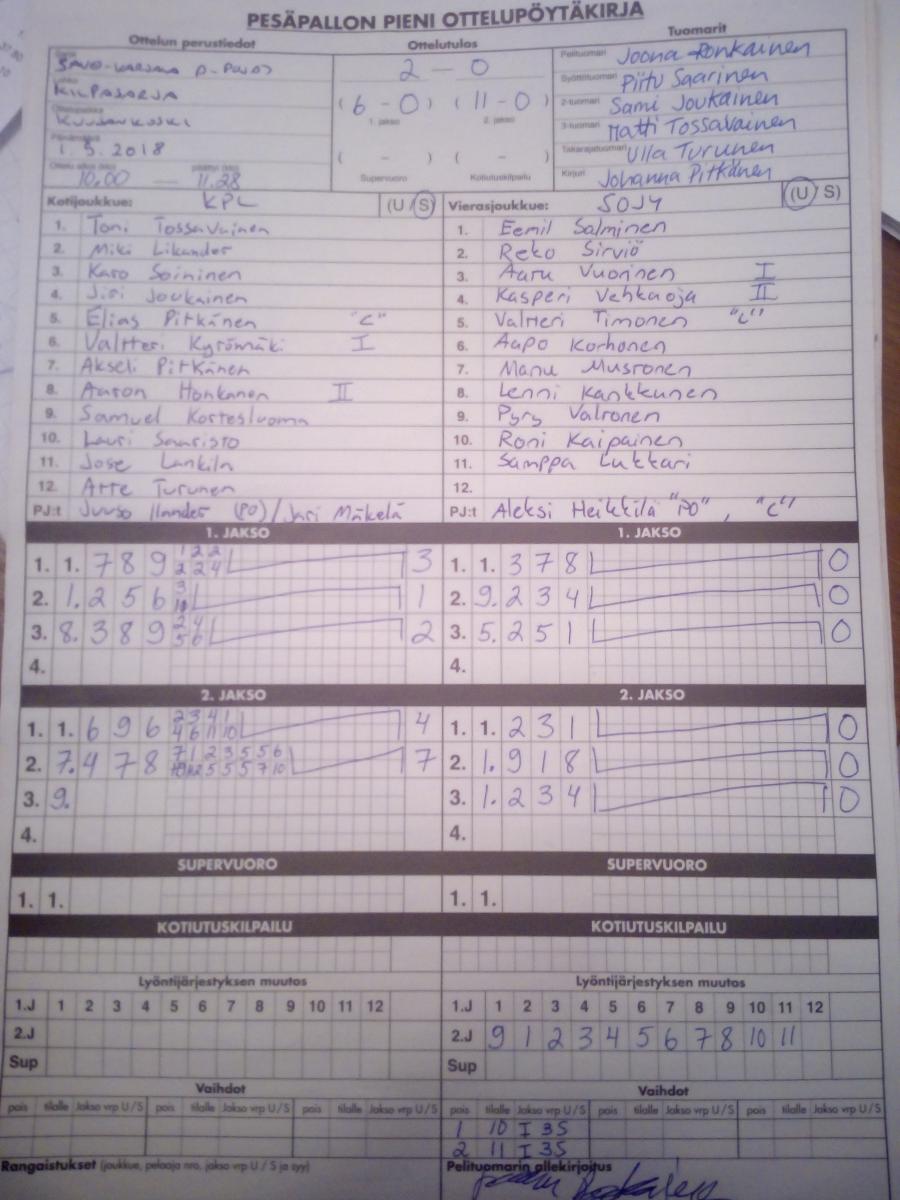 PESÄPALLON PIENI OTTELUPÖYTÄKIRJA
Ottelun perustiedot Ottelutulos Tuomarit
SAVO-KARJALA D-POJAT
KILPASARJA
KUUSANKOSKI
Päivämäärä
1.5.2018
10.00 — 11.28
2 - 0
(6 - 0) (11 - 0)
1. jakso 2. jakso
( - ) ( - )
Supervuoro Kotiutuskilpailu
Pelituomari Joona Ronkainen
Syöttötuomari Piitu Saarinen
2-tuomari Sami Joukainen
3-tuomari Matti Tossavainen
Takarajatuomari Ulla Turunen
Kirjuri Johanna Pitkänen
Kotijoukkue: KPL (U / S)
1. Toni Tossavainen
2. Miki Likander
3. Karo Soininen
4. Jiri Joukainen
5. Elias Pitkänen "C"
6. Valtteri Kyrömäki I
7. Akseli Pitkänen
8. Aaron Honkanen II
9. Samuel Kortesluoma
10. Lauri Saaristo
11. Jose Lankila
12. Arte Turunen
PJ:t Juuso Ilander (PO) / Jari Mäkelä
Vierasjoukkue: SOJY (U / S)
1. Eemil Salminen
2. Reko Sirviö
3. Aaru Vuorinen I
4. Kasperi Vehkaoja II
5. Valtteri Timonen "C"
6. Aapo Korhonen
7. Manu Mustonen
8. Lenni Kankkunen
9. Pyry Valtonen
10. Roni Kaipainen
11. Samppa Lukkari
12.
PJ:t Aleksi Heikkilä "PO", "C"
1. JAKSO 1. JAKSO
1. 1. 7 8 9 1 2 2 3
2 2 4
2. 1. 2 5 6 3 1
10
3. 8. 3 8 9 2 4 2
5 6
4.
1. 1. 3 7 8 0
2. 9. 2 3 4 0
3. 5. 2 5 1 0
4.
2. JAKSO 2. JAKSO
1. 1. 6 9 6 2 3 4 1 4
4 6 11 10
2. 7. 4 7 8 7 1 2 3 5 5 6 7
10 12 5 5 5 7 10
3. 9.
4.
1. 1. 2 3 1 0
2. 1. 9 1 8 0
3. 1. 2 3 4 0
4.
SUPERVUORO SUPERVUORO
1. 1. 1. 1.
KOTIUTUSKILPAILU KOTIUTUSKILPAILU
Lyöntijärjestyksen muutos Lyöntijärjestyksen muutos
1.J 1 2 3 4 5 6 7 8 9 10 11 12 1.J 1 2 3 4 5 6 7 8 9 10 11 12
2.J 2.J 9 1 2 3 4 5 6 7 8 10 11
Sup Sup
Vaihdot Vaihdot
pois tilalle Jakso vrp U/S pois tilalle Jakso vrp U/S pois tilalle Jakso vrp U/S pois tilalle Jakso vrp U/S pois tilalle Jakso vrp U/S pois tilalle Jakso vrp U/S
1 10 I 3S
2 11 I 3S
Rangaistukset (joukkue, pelaaja nro, jakso vrp U / S ja syy) Pelituomarin allekirjoitus